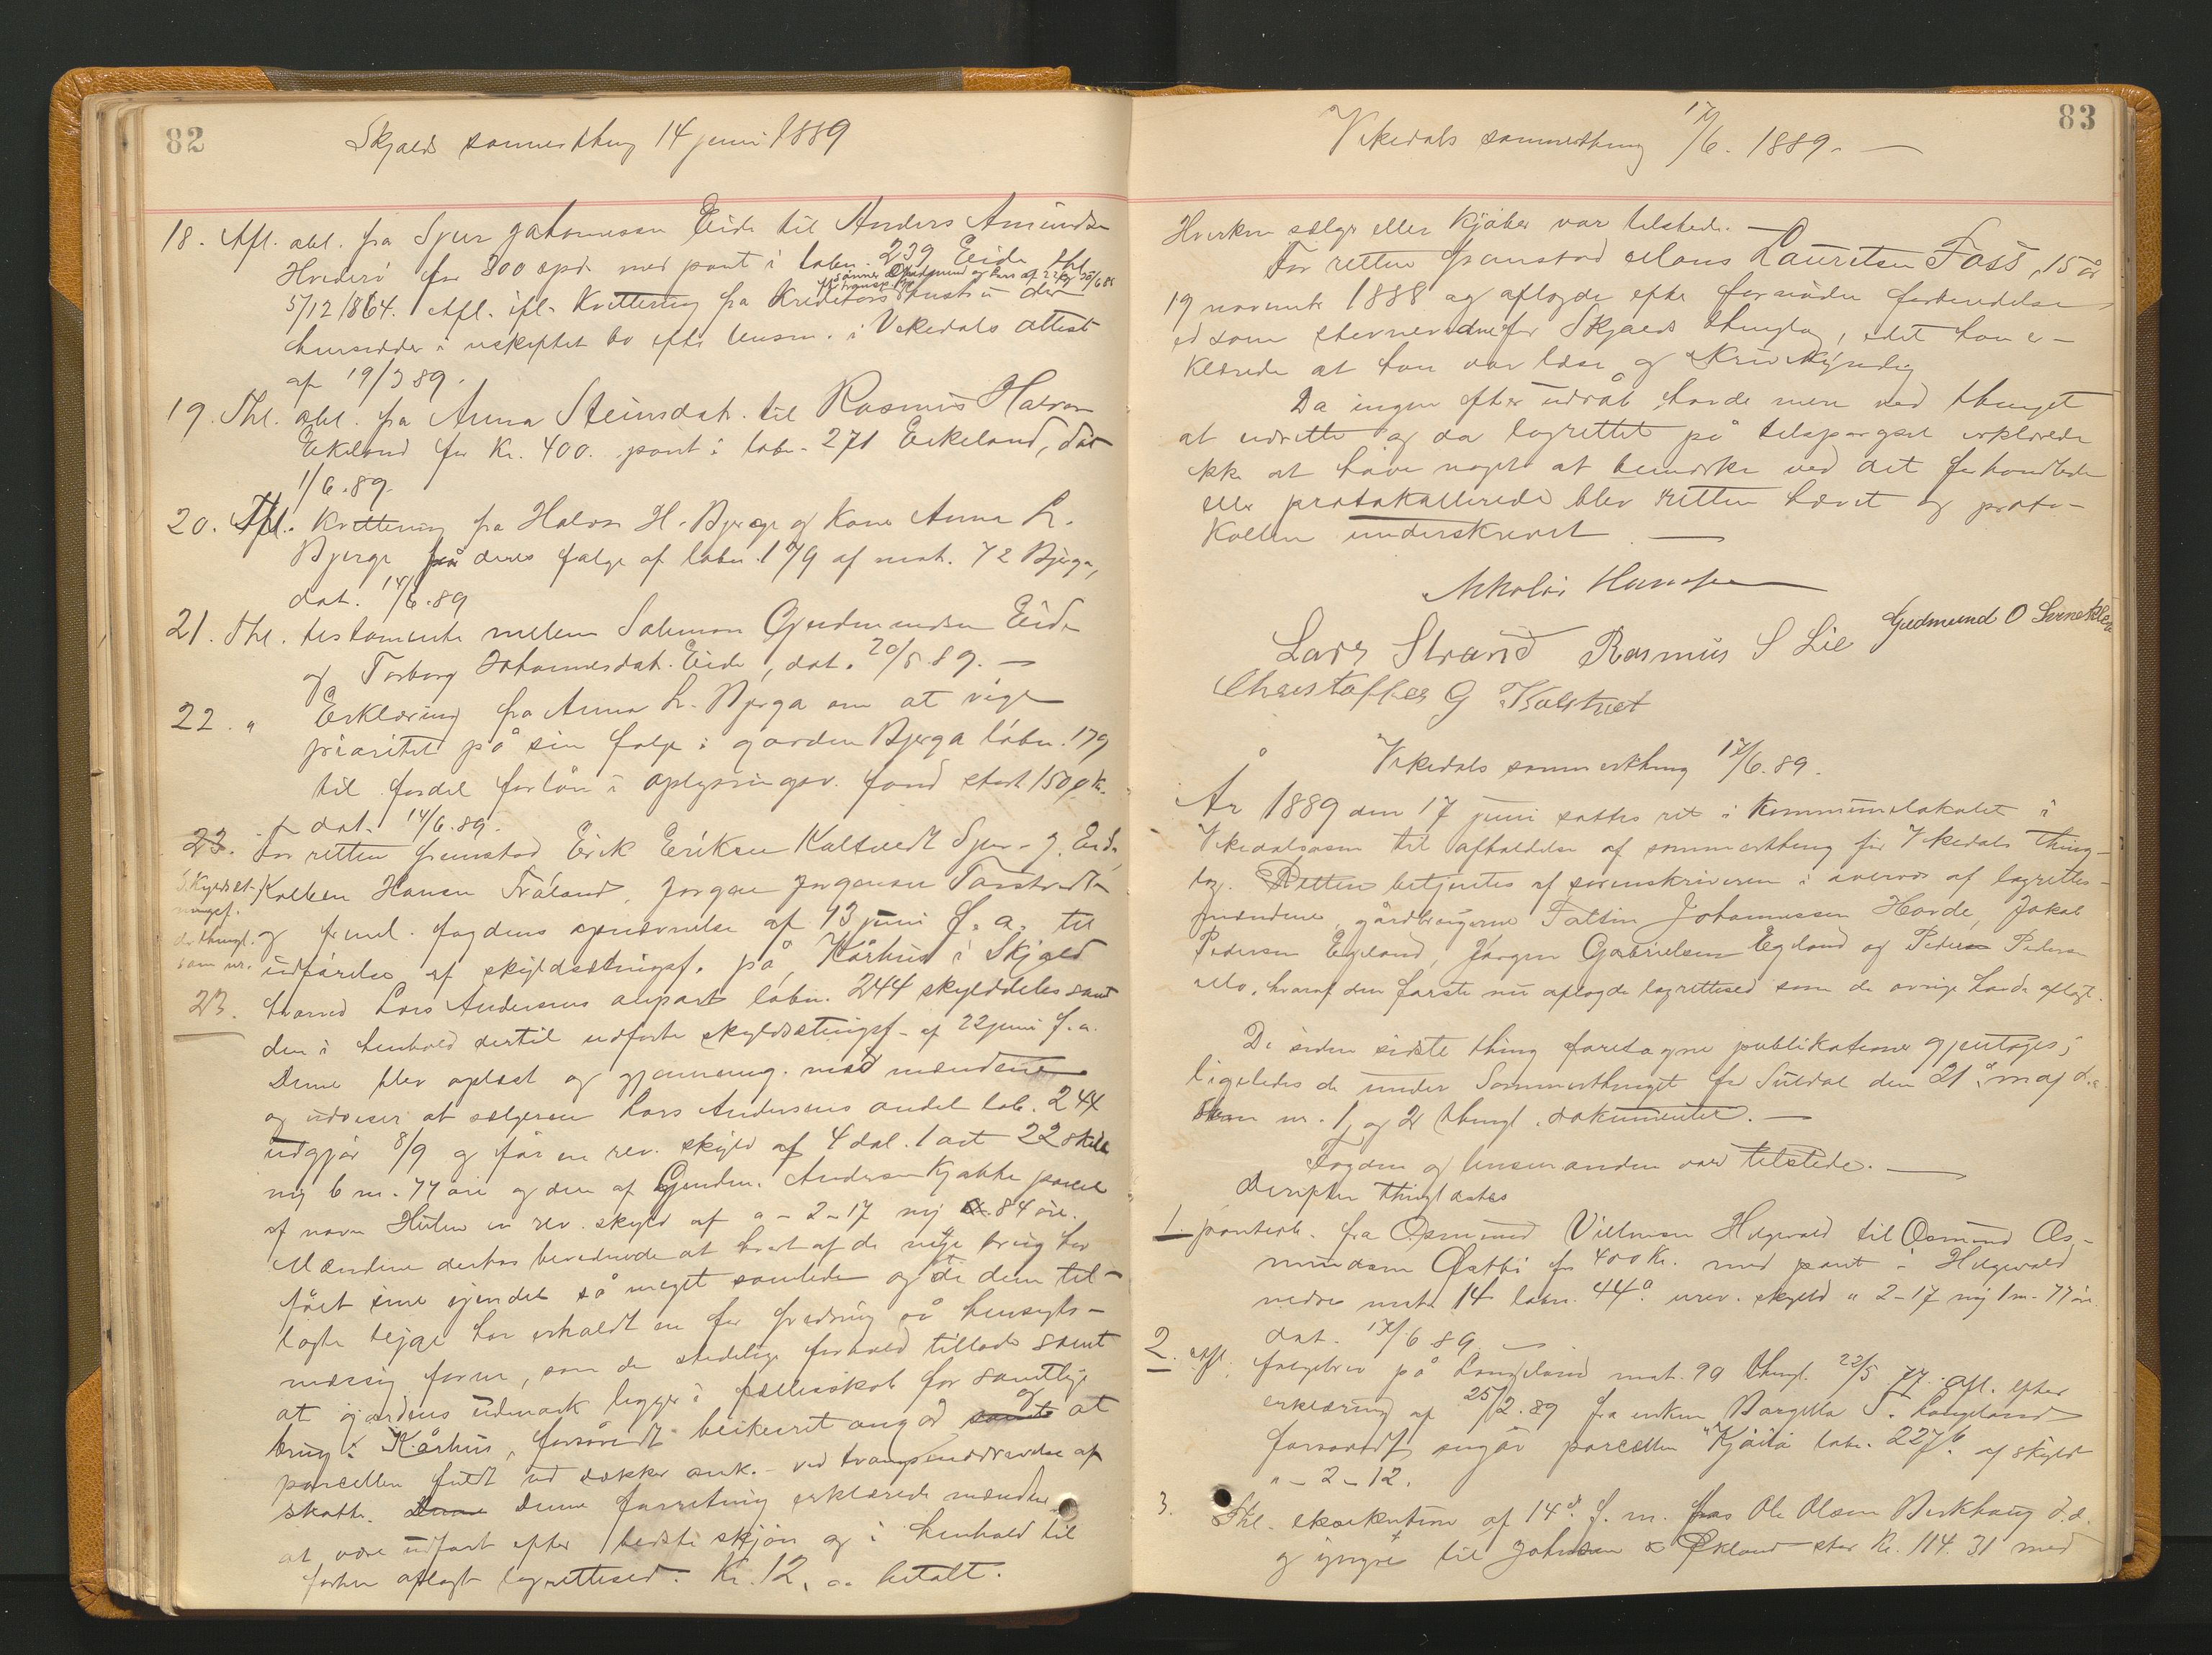 82
Skjolds sommerthing 14 juni 1889
18. Afl. obl. fra Sjur Johannesen Eide til Anders Amundsen
Hvederö for 800 spd. med pant i labn. 239 Eide thl.
5/12 1864. Afl. ifl. Kvittering fra Kreditors
hensidder i uskiftet bo efter lensm. i Vikedals attest
af 19/3 89.
19. Thl. obl. fra Anna Steinsdat. til Rasmus Halvors.
Eikeland for Kr. 400. pant i labn. 271 Eikeland, dat.
1/6.89.
20. Afl. Kvittering fra Halvor H. Bjerge og Kone Anna L.
Bjerge på deres følge af labn. 179 af mat. 72 Bjerge,
dat. 14/6.89
21. Thl. testamente mellem Salemon Gudmundsen Eide
og Torborg Johannesdat. Eide, dat. 20/5.89. —
22. " Erklæring fra Anna L. Bjerga om at vige
prioritet på sin følge i gården Bjerga löbn. 179
til fordel for lån i oplysningsv. fond stort 1500 k.
dat. 14/6.89.
23. For retten fremstod Erik Eriksen Kaltvedt Sjur J. Eide,
Skyldsæt- Kolben Hansen Tråland, Jørgen Jørgensen
ningsf.
derthingl. og freml. fogdens opnævnelse af 13 juni f. a. til
som nr. udførelse af skyldsætningsf. på Kårhus i Skjold
23. hvorved Lars Andersens anpart löbn. 244 skylddeles samt
den i henhold dertil udførte skyldsætningsf. af 22 juni f. a.
Denne blev oplæst og gjennemg. med mændene
og udviser at sælgeren Lars Andersens andel löb. 244
udgjør 8/9 og får en rev. skyld af 4 dal. 1 ort 22 skill
ny 6 m. 77 øre og den af Gudm. Andersen kjøbte parcel
af navn Hulen en rev. skyld af " - 2 - 17 ny 84 øre.
Mændene derhos bevidnede at hvert af de nye brug har
fået sine eiendele så meget samlede og de dem til-
lagte teiger har erholdt en for fredning så hensigts-
mæssig form, som de stedelige forhold tillod samt
at gårdens udmark ligger i fællesskab for samtlige
brug i Kårhus, forsåvidt beiteret angår og at
parcellen fuldt ud dækker omk. ved tvangsinddrivelse af
skatter. Denne forretning erklærede mændene
at være udført efter bedste skjøn og i henhold til
forhen aflagt lagrettesed. Kr. 12, " betalt.
83
Vikedals sommerthing 17/6. 1889. —
Hverken sælger eller kjøber var tilstede. —
For retten fremstod Mons Lauritsen Foss, 15 år
19 novembr 1888 og aflagde efter forudgå
ed som stevnevidne for Skjolds thinglag, idet han er-
klærede at han var læse og skrivekyndig
Da ingen efter udråb havde mere ved thinget
at udrette og da lagrettet på tilspørgsel erklærede
ikke at have noget at bemærke ved det forhandlede
eller protokollerede blev retten hævet og proto-
kollen underskrevet. —
Nikolai Hansen
Lars Strand Rasmus S Lie Gudmund O
Christoffer G
Vikedals sommerthing 17/6.89.
År 1889 den 17 juni sattes ret i kommunelokalet i
Vikedalsosen til afholdelse af sommerthing for Vikedals thing-
lag. Retten betjentes af sorenskriveren i overvær af lagrettes-
mændene, gårdbrugerne Johannessen Hovde, Jakob
Pedersen Egeland, Jørgen Gabrielsen Egeland og Peder Pedersen
Mo, hvoraf den første nu aflagde lagrettesed som de øvrige havde aflagt.
De siden sidste thing foretagne publikationer gjentoges;
ligeledes de under Sommerthinget for Suldal den 21 maj d. a.
som nr. 1 og 2 thingl. dokumenter. —
Fogden og lensmanden var tilstede. —
Derefter thinglæstes
1. pantobl. fra Osmund Villumsen Helgevold til Osmund Os-
mundsen Østbö for 400 Kr. med pant i Helgevold
nedre mat. 14 labn. 44a urev. skyld " 2-17 ny 1 m. 77 øre.
dat. 17/6 89. —
2. Afl. følgebrev på Langeland mat. 99 thingl. 22/5 77. Afl. efter
erklæring af 25/2.89 fra enken Borgilla T. Langeland
forsåvidt angår parcellen "Kjöilå labn. 227b af skyld
" - 2 - 12.
3. Thl. exsekution af 14d f. m. hos Ole Olsen Birkhaug d.æ.
og yngre til Johnsen & Økland stor Kr. 114.31 med